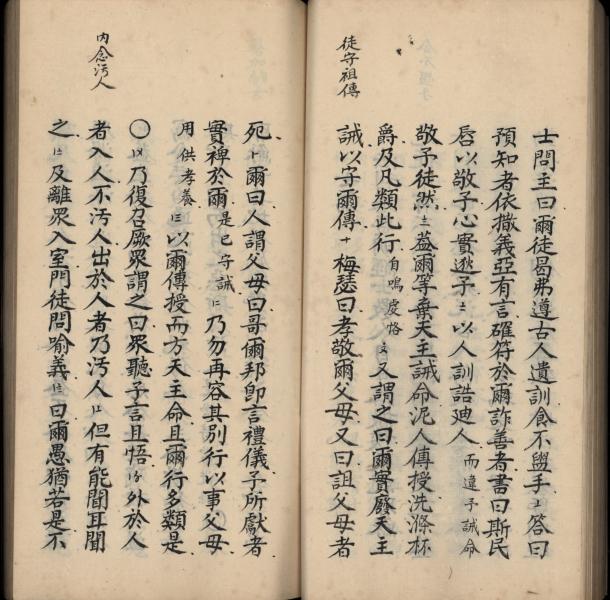 徒守祖傳
士問主曰爾徒曷弗遵古人遺訓食不盥手答曰
預知者依撒義亞有言確符於爾詐善者書曰斯民
唇以敬予心實逖予以人訓誥廸人而違予誡命
敬予徒然蓋爾等棄天主誡命泥人傳授洗滌杯
爵及凡類此行自鳴虔恪又謂之曰爾實廢天主
誡以守爾傳梅瑟曰孝敬爾父母又曰詛父母者
內念污人
死爾曰人謂父母曰哥爾邦卽言禮儀子所獻者
實裨於爾是已守誡乃勿再容其別行以事父母
用供孝養以爾傳授而方天主命且爾行多類是
〇乃復召厥眾謂之曰眾聽予言且悟外於人
者入人不污人出於人者乃污人但有能聞耳聞
之及離眾入室門徒問喻義曰爾愚猶若是不